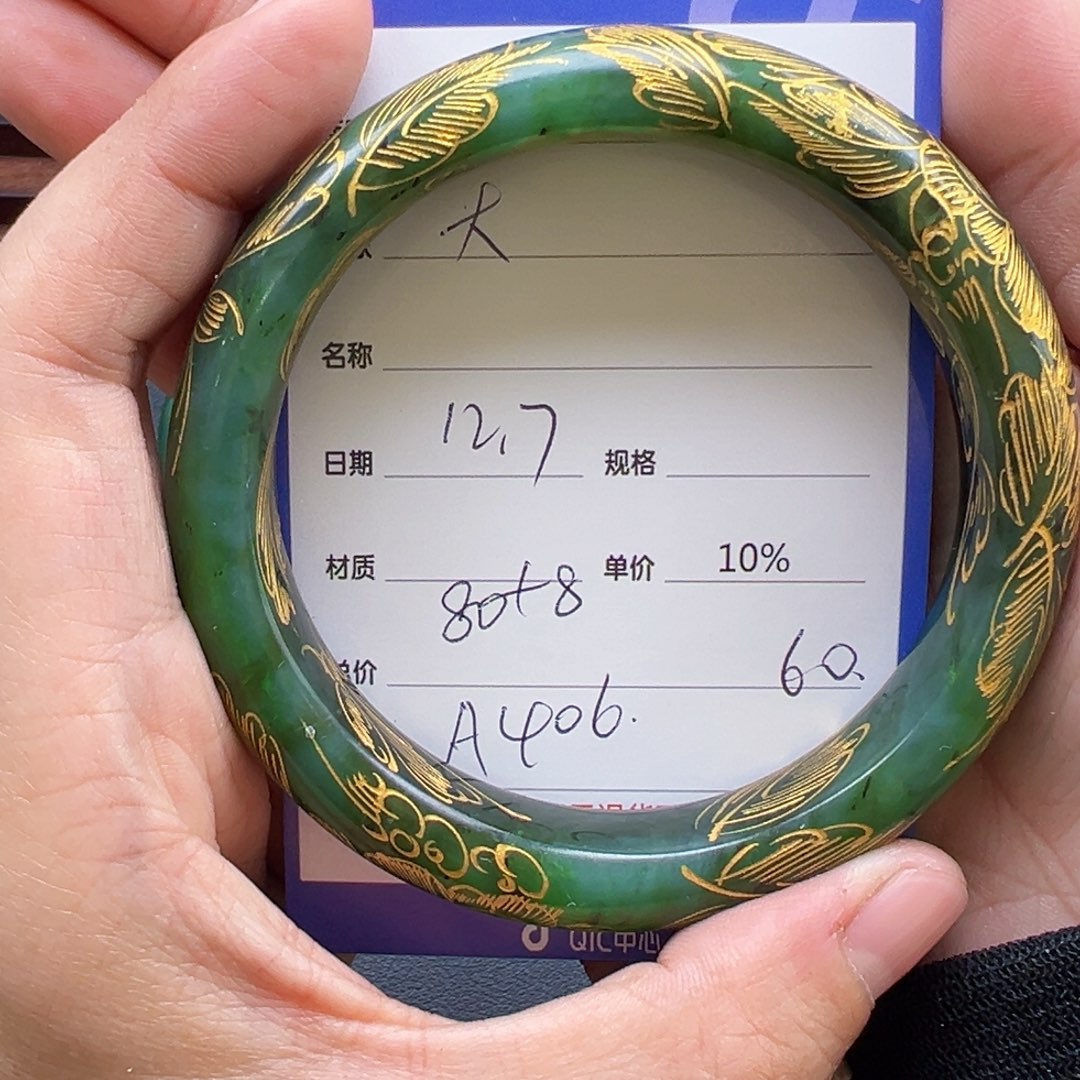 大
名称
12.7
日期 规格
材质 单价 10%
80+8
单价 60.
A406.
QIC中心